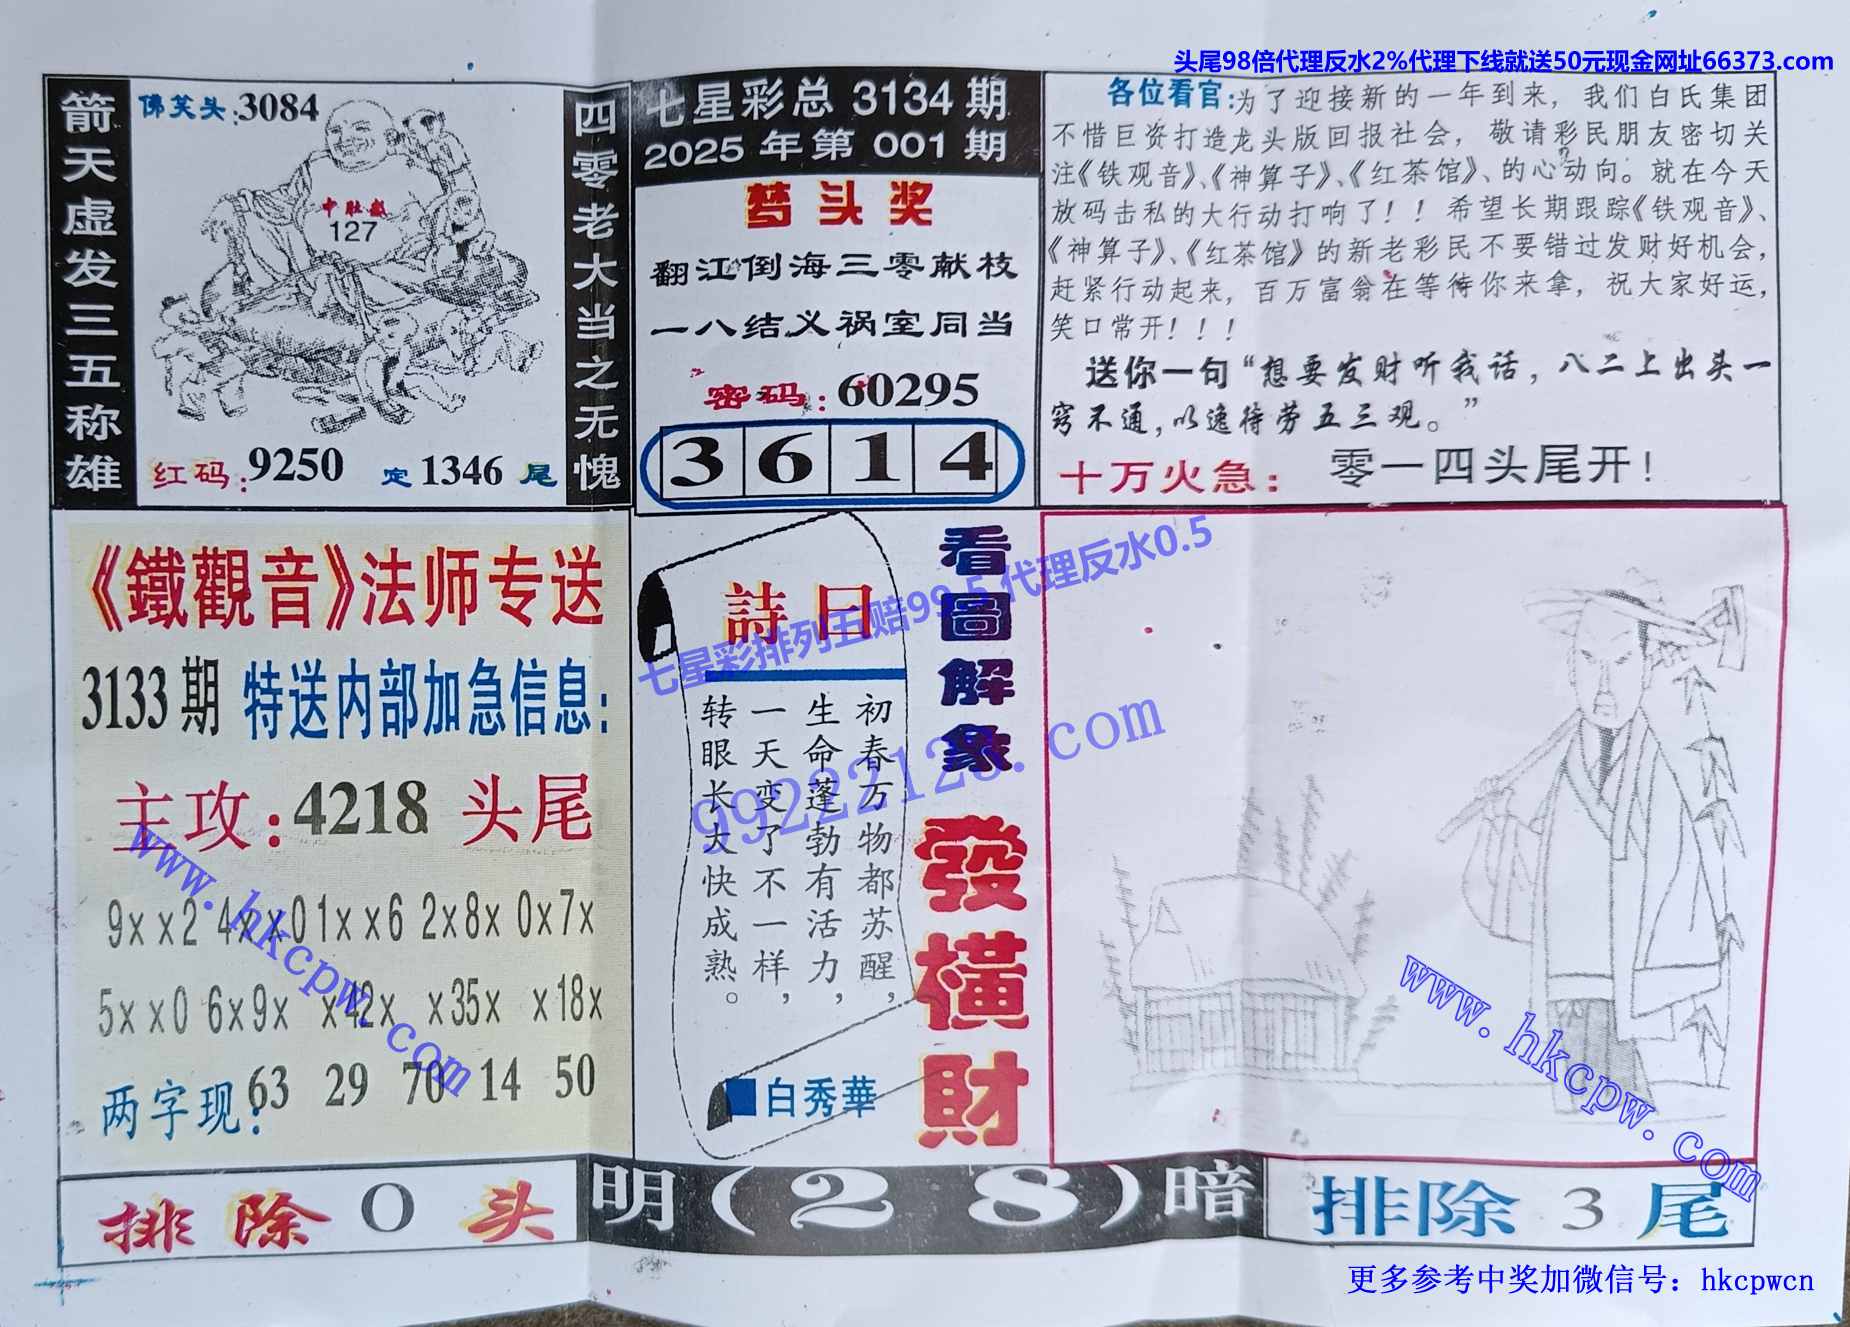 头尾98倍代理反水2%代理下线就送50元现金网址66373.com
箭天虚发三五称雄
佛笑头:3084
中肚藏
127
红码:9250 定1346尾
四零老大当之无愧
七星彩总3134期
2025年第001期
梦头奖
翻江倒海三零献枝
一八结义祸室同当
密码:60295
3614
各位看官:为了迎接新的一年到来,我们白氏集团
不惜巨资打造龙头版回报社会,敬请彩民朋友密切关
注《铁观音》、《神算子》、《红茶馆》、的心动向。就在今天
放码击私的大行动打响了!!希望长期跟踪《铁观音》、
《神算子》、《红茶馆》的新老彩民不要错过发财好机会,
赶紧行动起来,百万富翁在等待你来拿,祝大家好运,
笑口常开!!!
送你一句“想要发财听我话,八二上出头一
窍不通,以逸待劳五三观。”
十万火急:零一四头尾开!
《鐵觀音》法师专送
3133期 特送内部加急信息:
主攻:4218头尾
9xx2 4xx0 1xx6 2x8x 0x7x
5xx0 6x9x x42x x35x x18x
两字现:63 29 70 14 50
詩曰
初春万物都苏醒,
生命蓬勃有活力,
一天变了不一样,
转眼长大快成熟。
白秀華
看圖解象
發橫財
七星彩排列五赔99.5代理反水0.5
99222123.com
www.hkcpw.com
www.hkcpw.com
排除0头
明(28)暗
排除3尾
更多参考中奖加微信号:hkcpwcn